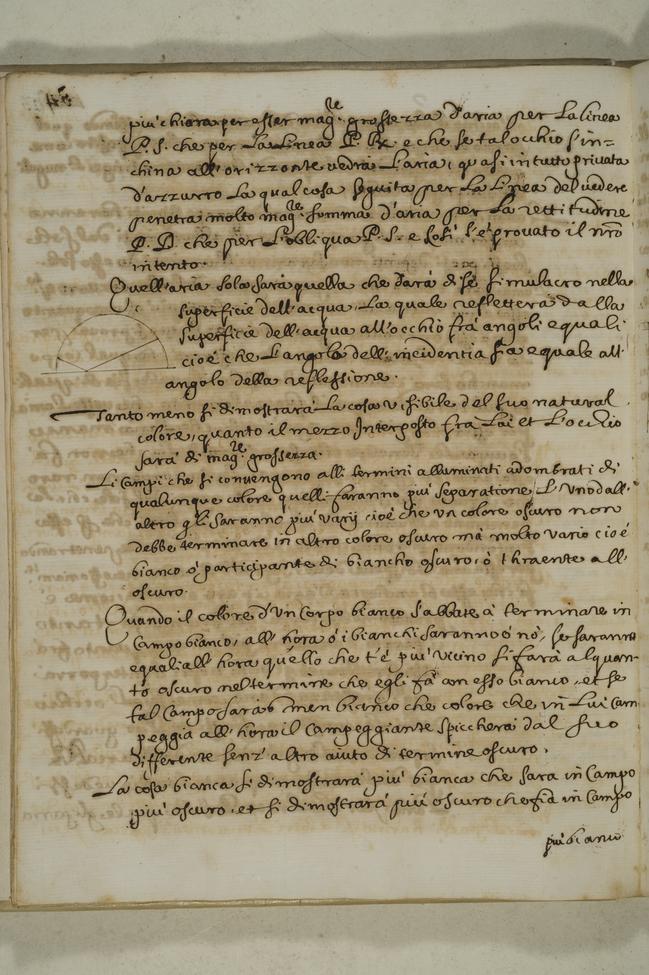 più chiara per esser mag.re grossezza d'aria per la linea
P. S. che per la linea P. R. e che se tal occhio s'in=
china all'orizzonte vedrà l'aria quasi in tutto privata
d'azzurro la qual cosa seguita per la linea del vedere
penetra molto mag.re somma d'aria per la rettitudine
P. D. che per l'obliqua P. S. e così s'è provato il nr̃o
intento.
Quell'aria sola sarà quella che darà di sé simulacro nella
superficie dell'acqua, la quale refletterà dalla
superficie dell'acqua all'occhio frà angoli equali
cioé che l'angolo dell'incidentia sia equale all'
angolo della reflessione.
Tanto meno si dimostrarà la cosa visibile del suo natural
colore, quanto il mezzo interposto fra lai et l'occhio
sarà di mag.re grossezza.
Li campi che si convengono alli termini alluminati adombrati di
qualunque colore quelli faranno più separatione l'uno dall'
altro q'li saranno più varij cioé che un colore oscuro non
debbe terminare in altro colore oscuro mà molto vario cioé
bianco ò participante di biancho oscuro, ò thraente all'
oscuro.
Quando il colore d'un corpo bianco s'abbate à terminare in
campo bianco, all'hora ò i bianchi saranno ò nò, se saranno
equali all'hora quello che t'é più vicino si farà alquan-
tò oscuro nel termine che egli fà con esso bianco, et se
tal campo sarà men bianco che colore che in lui cam
peggia all'hora il campeggiante spiccherà dal suo
differente senz'altro aiuto di termine oscuro.
La cosa bianca si dimostrarà più bianca che sarà in campo
più oscuro, et si dimostrarà più oscuro che sia in campo
più bianco